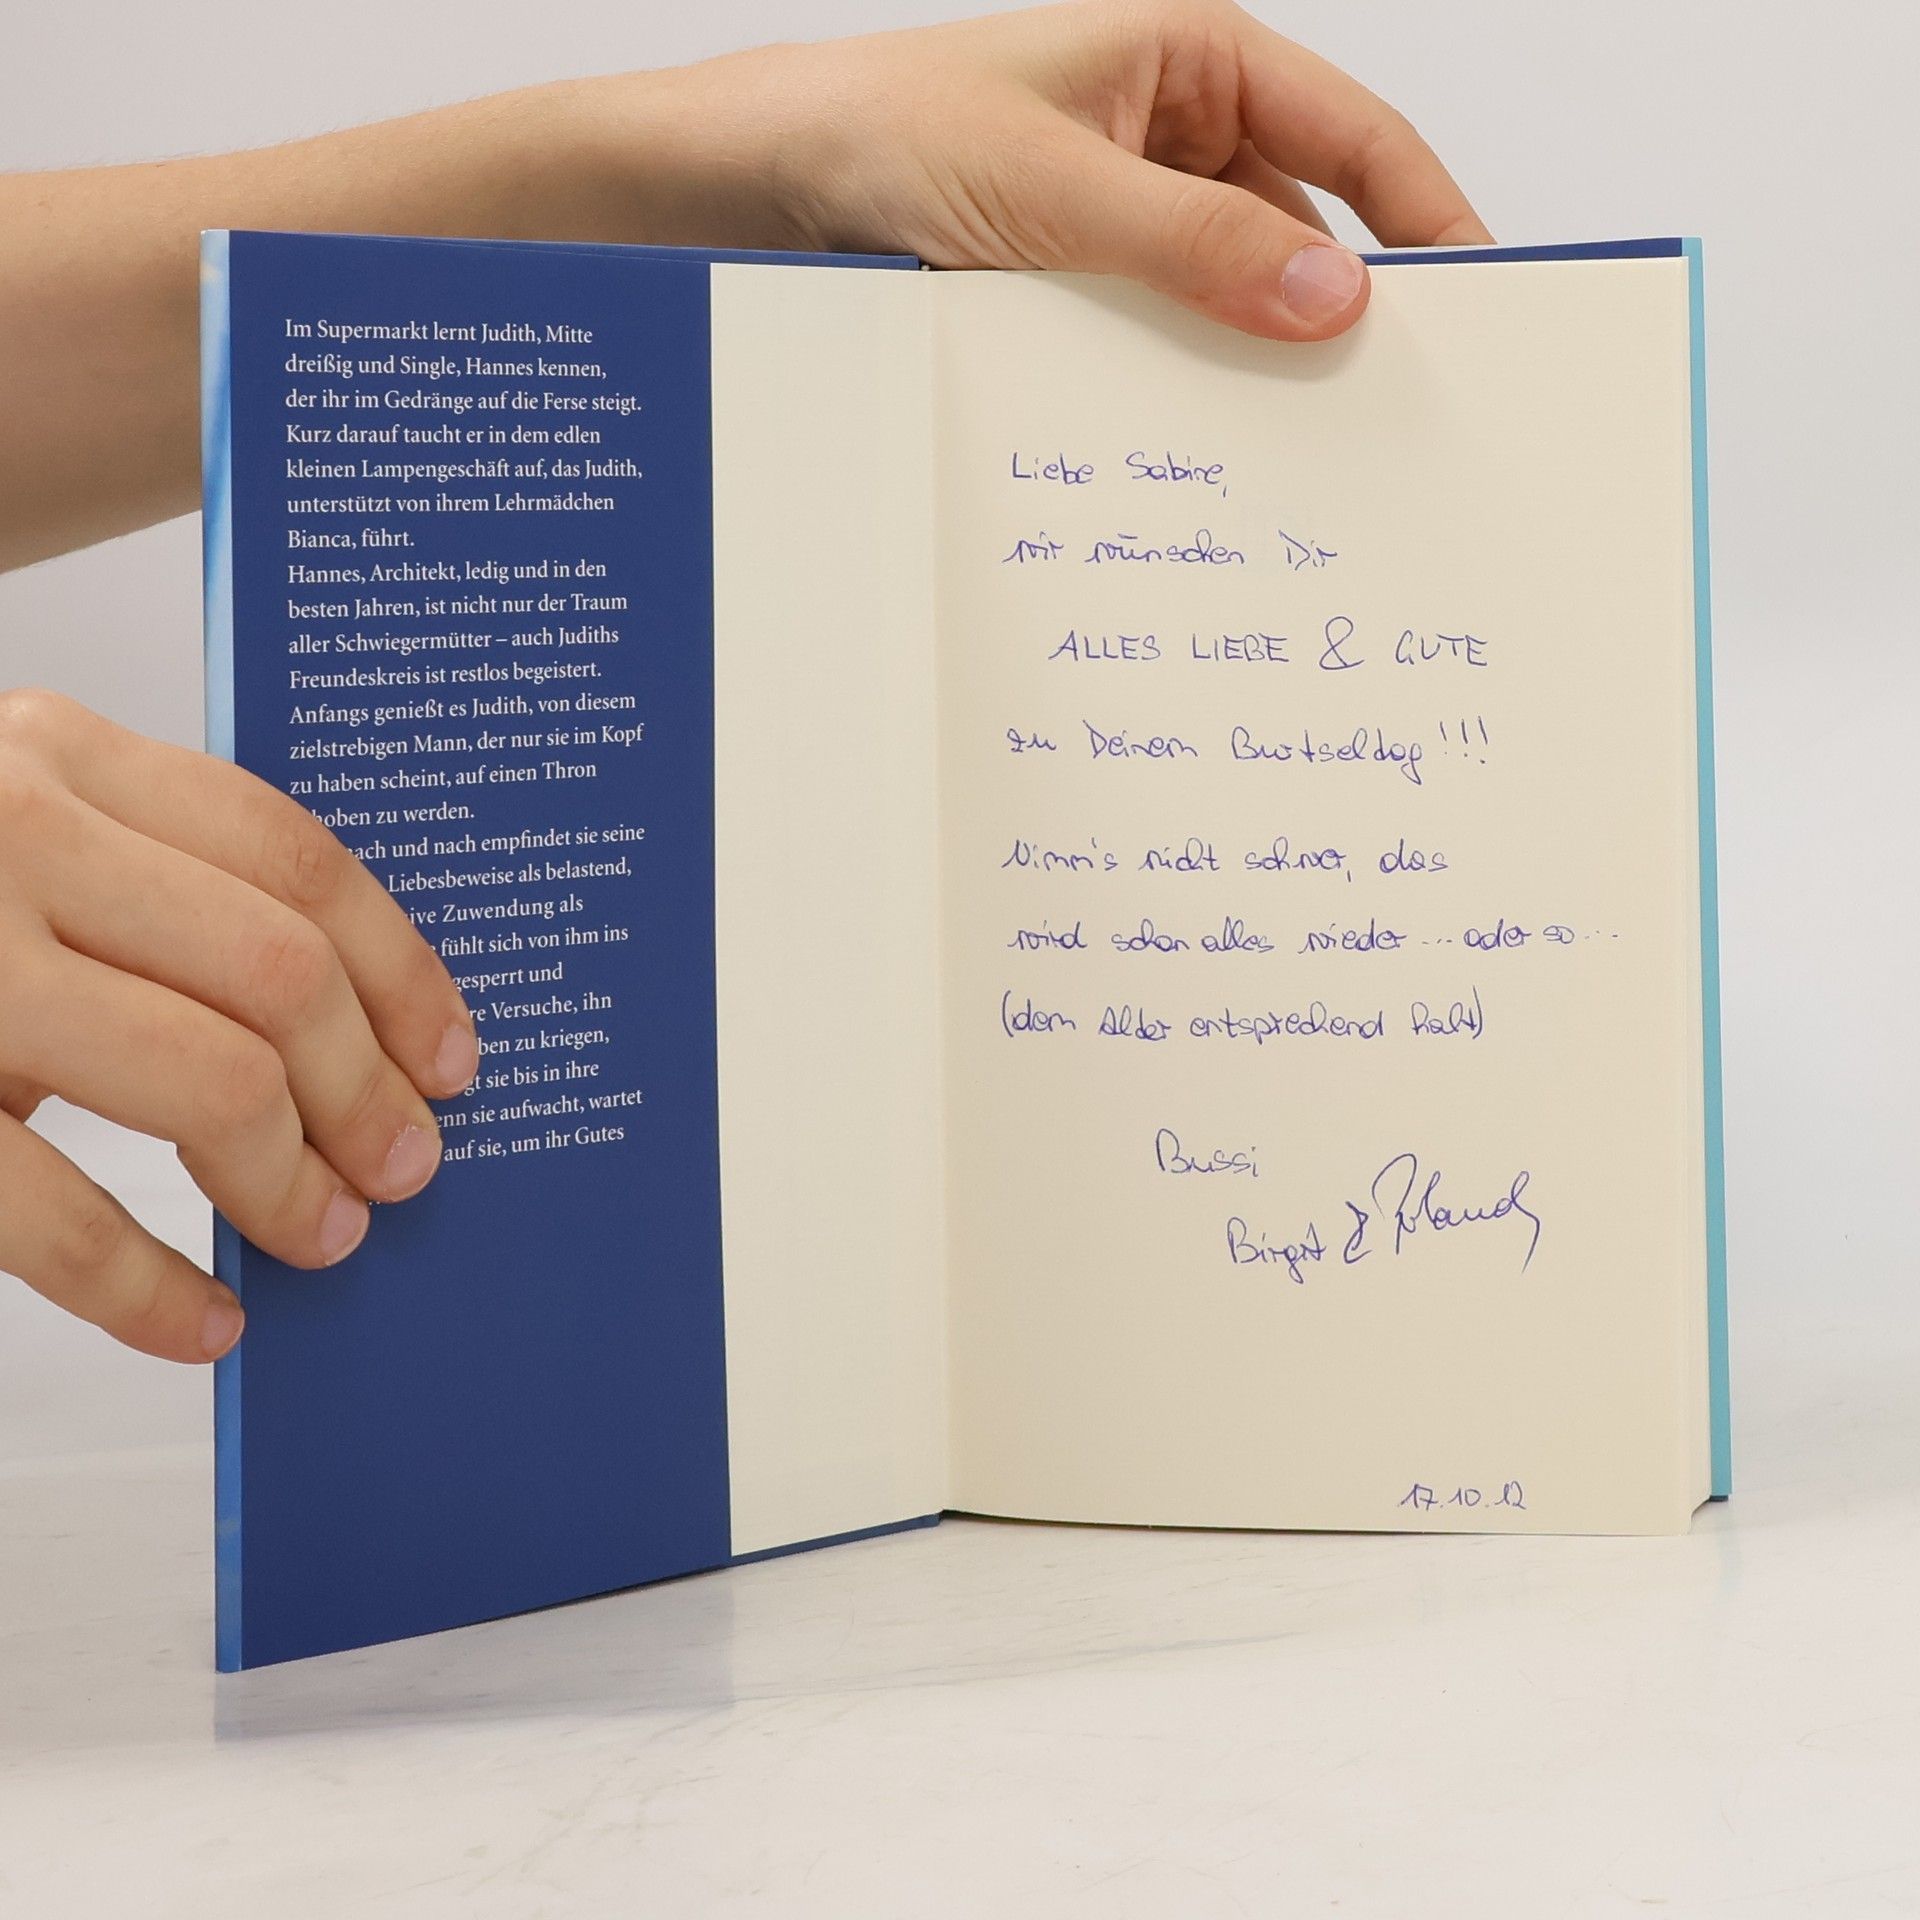 Im Supermarkt lernt Judith, Mitte
dreißig und Single, Hannes kennen,
der ihr im Gedränge auf die Ferse steigt.
Kurz darauf taucht er in dem edlen
kleinen Lampengeschäft auf, das Judith,
unterstützt von ihrem Lehrmädchen
Bianca, führt.
Hannes, Architekt, ledig und in den
besten Jahren, ist nicht nur der Traum
aller Schwiegermütter – auch Judiths
Freundeskreis ist restlos begeistert.
Anfangs genießt es Judith, von diesem
zielstrebigen Mann, der nur sie im Kopf
zu haben scheint, auf einen Thron
hoben zu werden.
ach und nach empfindet sie seine
Liebesbeweise als belastend,
ive Zuwendung als
fühlt sich von ihm ins
gesperrt und
re Versuche, ihn
ben zu kriegen,
gt sie bis in ihre
enn sie aufwacht, wartet
auf sie, um ihr Gutes
Liebe Sabine,
wir wünschen Dir
ALLES LIEBE & GUTE
zu Deinem Burtseldag!!!
Nimm's nicht schwer, das
wird schon alles wieder ... oder so ...
(dem Alder entsprechend halt)
Bussi
Birgit & Roland
17.10.12